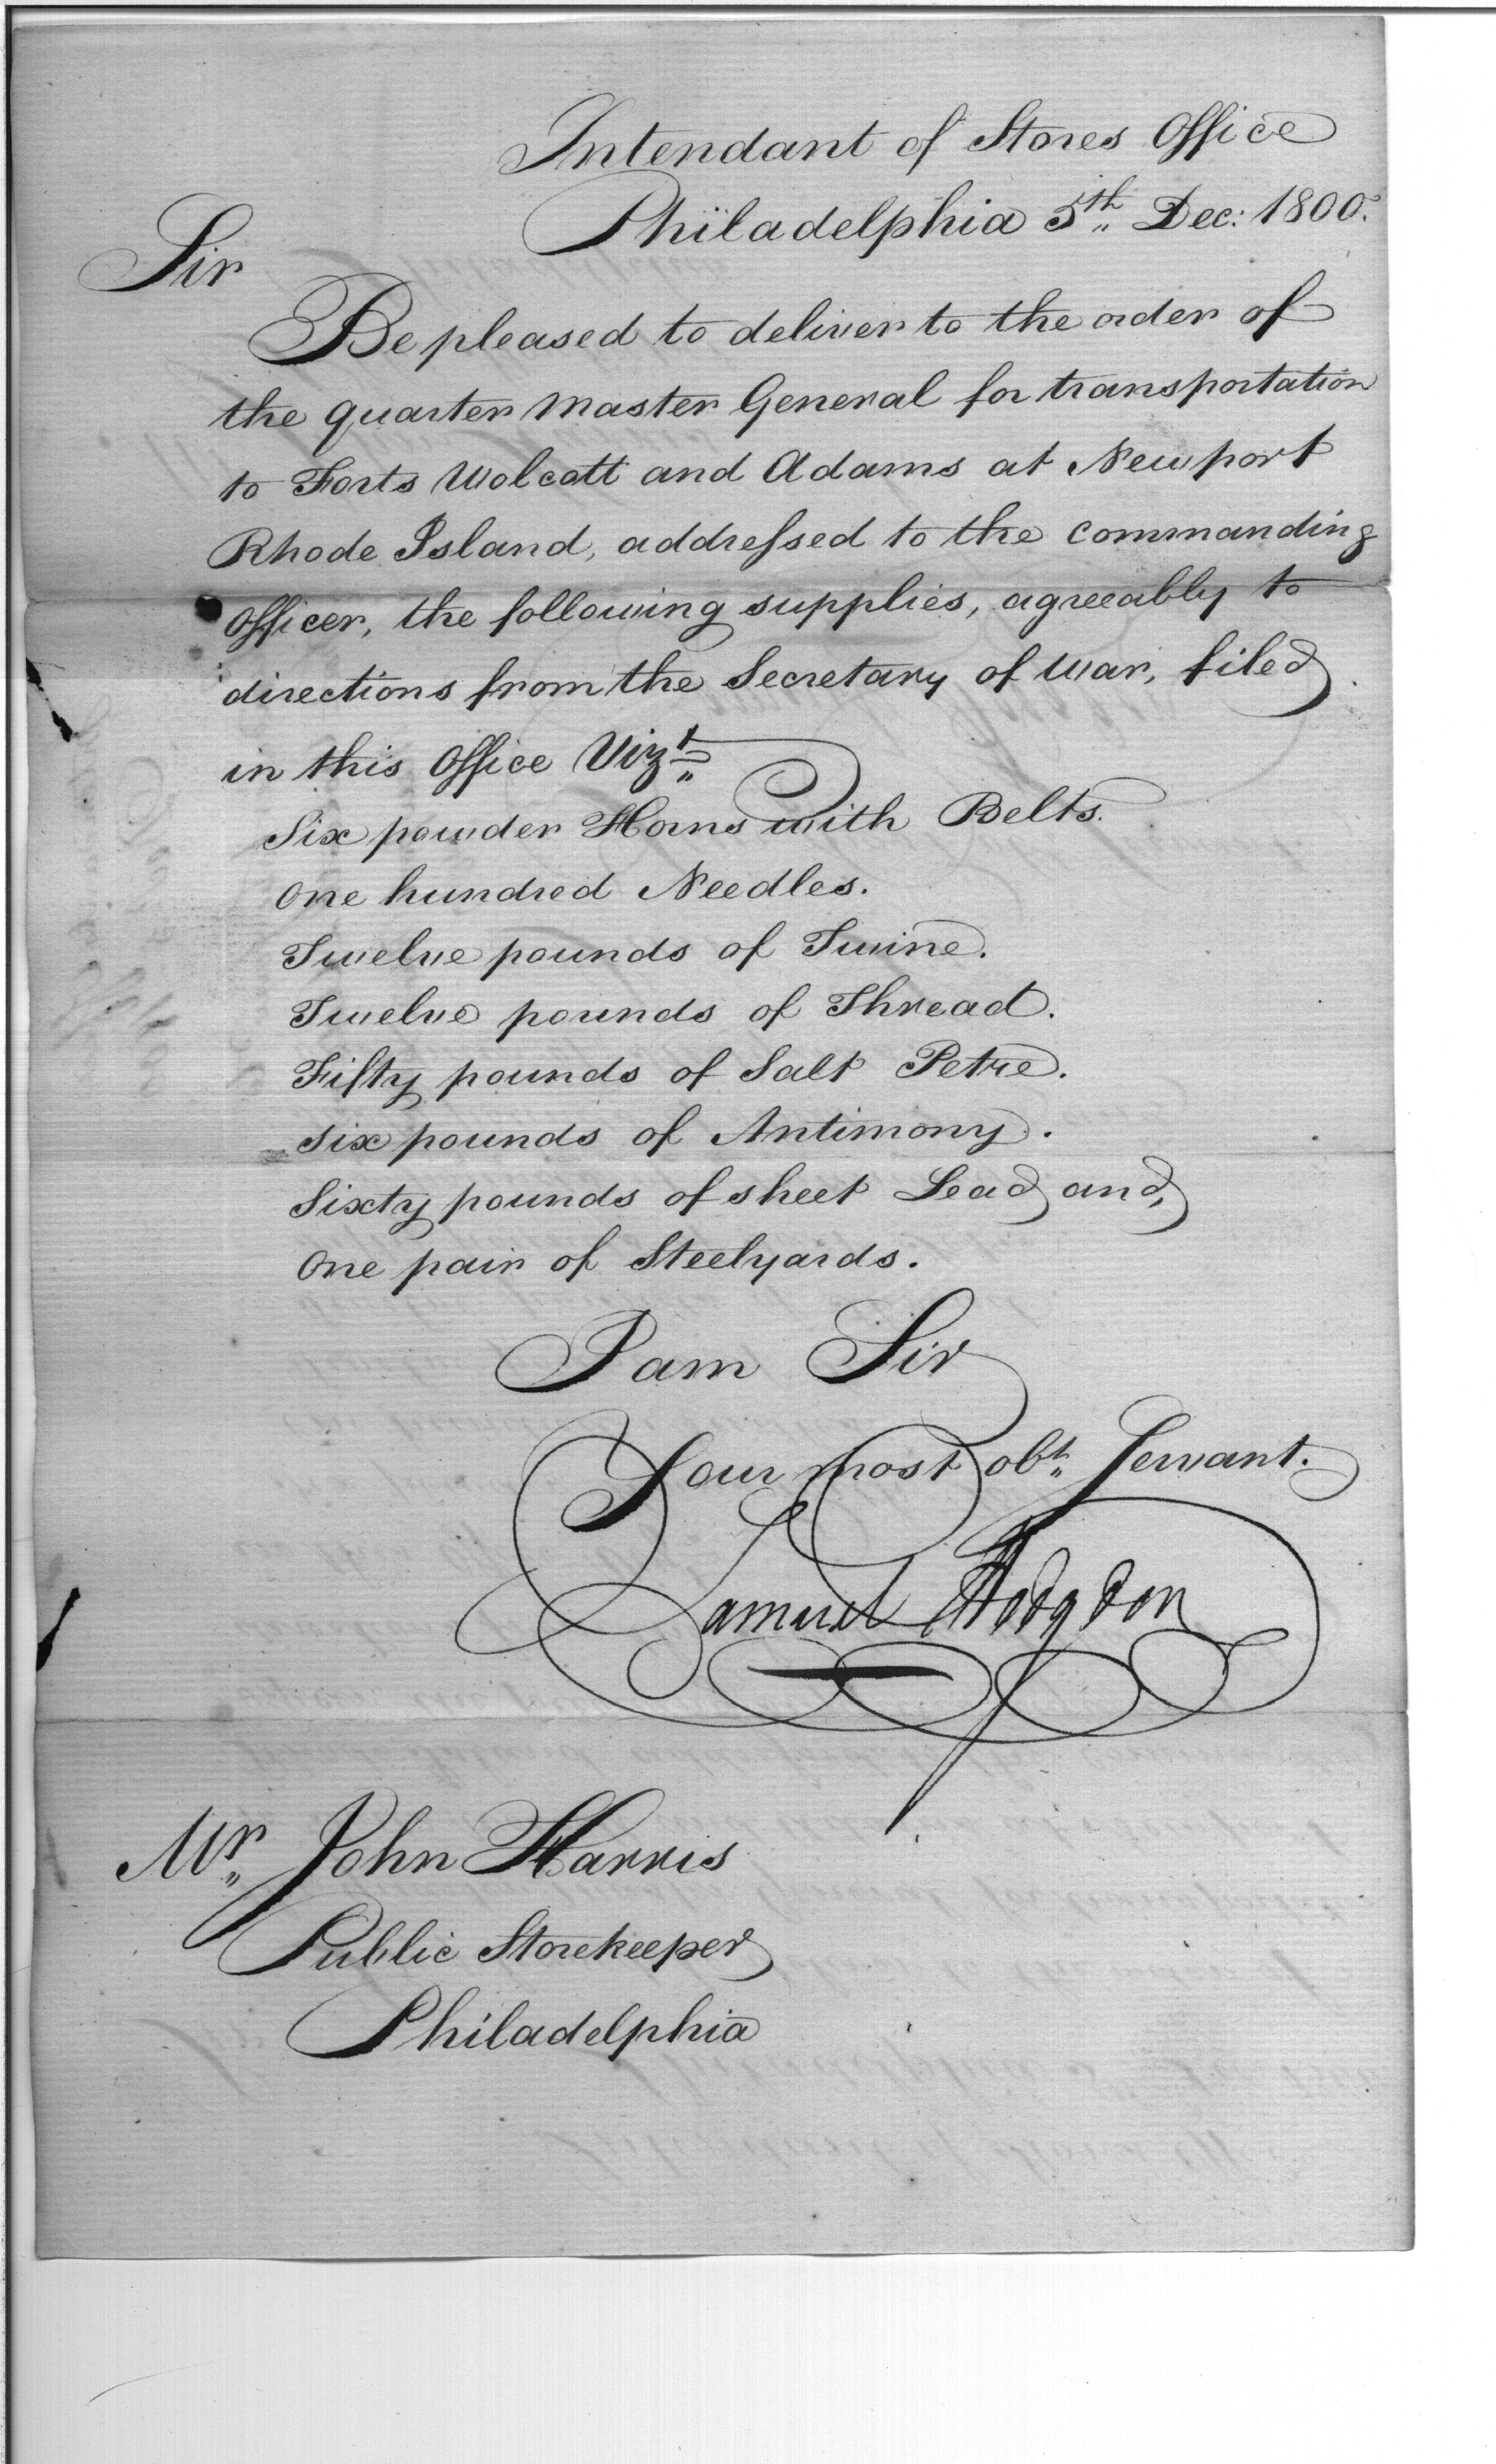 Intendant of Stores Office
Philadelphia 5th Dec: 1800.
Sir
Be pleased to deliver to the order of
the quarter Master General for transportation
to Forts Wolcott and Adams at Newport
Rhode Island, addressed to the Commanding
Officer, the following supplies, agreeably to
directions from the Secretary of War, filed
in this Office Vizt
Six powder Horns with Belts.
One hundred Needles.
Twelve pounds of Twine.
Twelve pounds of Thread.
Fifty pounds of Salt Petre.
Six pounds of Antimony.
Sixty pounds of sheet Lead and,
One pair of Steelyards.
I am Sir
Your most obt. Servant.
Samuel Hodgdon
Mr. John Harris
Public Storekeeper
Philadelphia